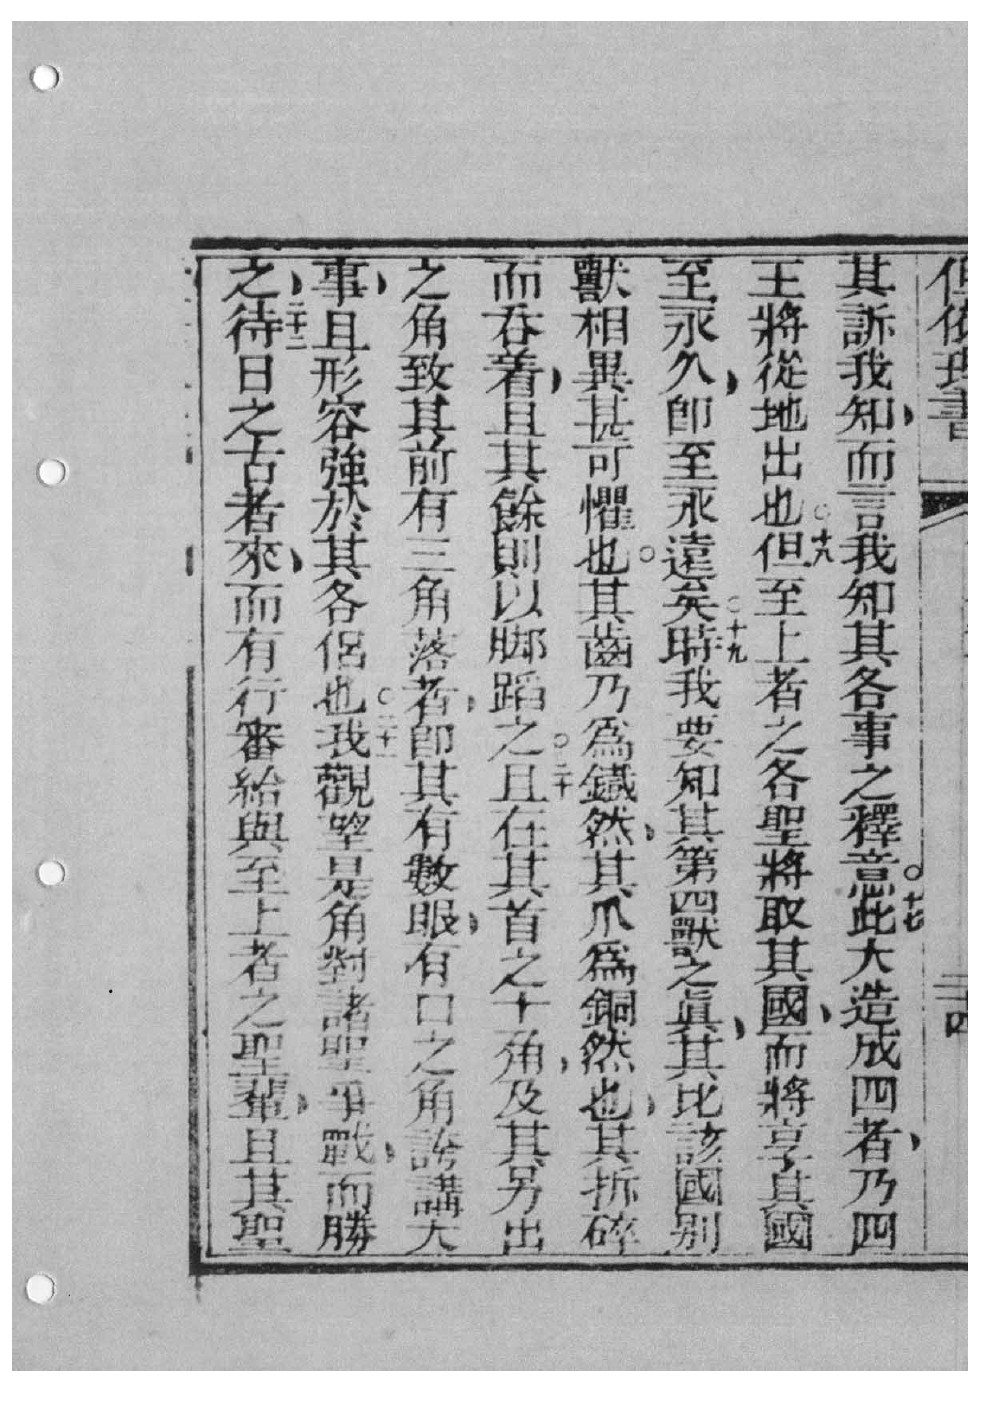 但依理書
三十四
其訴我知而言我知其各事之釋意○十七此大造成四者乃四
王將從地出也○十九但至上者之各聖將取其國而將享其國
至永久卽至永遠矣○十九時我要知其第四獸之眞其比該國別
獸相異甚可懼也○其齒乃爲鐵然其爪爲銅然也其拆碎
而吞着且其餘則以脚蹈之○二十且在其首之十角及其另出
之角致其前有三角落者卽其有數眼有口之角誇講大
事且形容強於其各侶也○二十一我觀望是角對諸聖爭戰而勝
之二十二待日之古者來而有行審給與至上者之聖輩且其聖